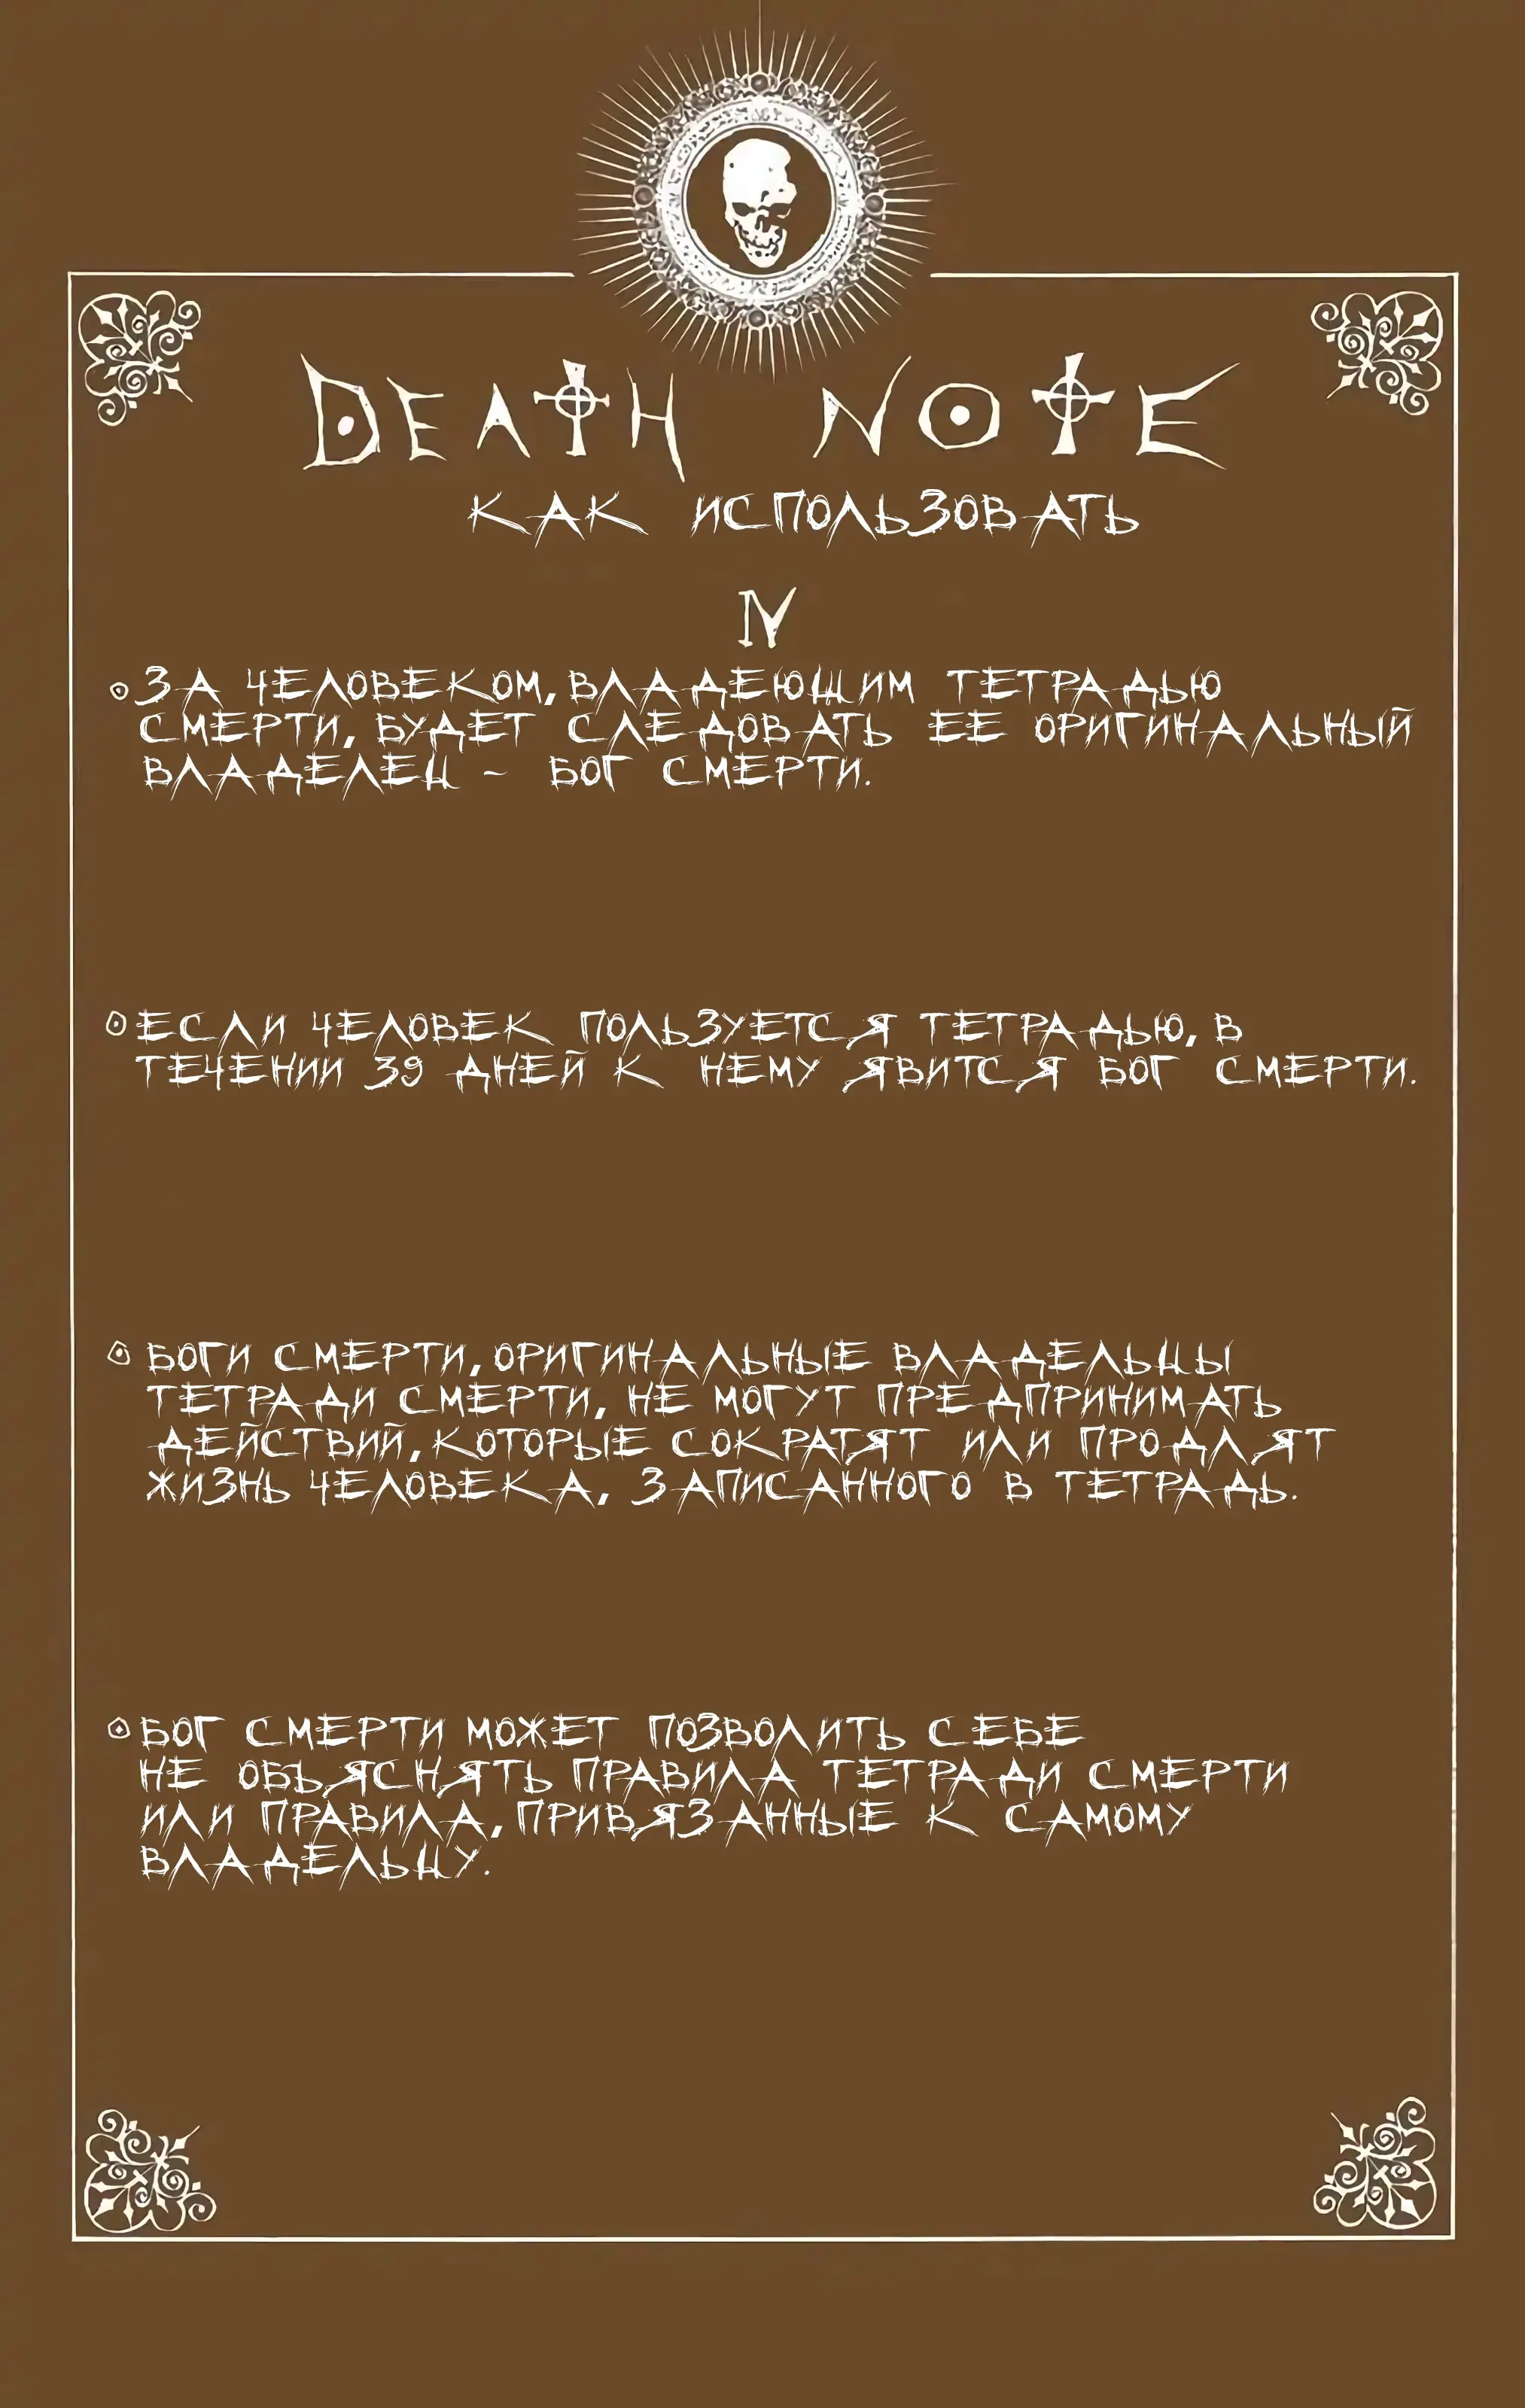 DEATH NOTE
КАК ИСПОЛЬЗОВАТЬ
IV
ЗА ЧЕЛОВЕКОМ, ВЛАДЕЮЩИМ ТЕТРАДЬЮ
СМЕРТИ, БУДЕТ СЛЕДОВАТЬ ЕЕ ОРИГИНАЛЬНЫЙ
ВЛАДЕЛЕЦ - БОГ СМЕРТИ.
ЕСЛИ ЧЕЛОВЕК ПОЛЬЗУЕТСЯ ТЕТРАДЬЮ, В
ТЕЧЕНИИ 39 ДНЕЙ К НЕМУ ЯВИТСЯ БОГ СМЕРТИ.
БОГИ СМЕРТИ, ОРИГИНАЛЬНЫЕ ВЛАДЕЛЬЦЫ
ТЕТРАДИ СМЕРТИ, НЕ МОГУТ ПРЕДПРИНИМАТЬ
ДЕЙСТВИЙ, КОТОРЫЕ СОКРАТЯТ ИЛИ ПРОДЛЯТ
ЖИЗНЬ ЧЕЛОВЕКА, ЗАПИСАННОГО В ТЕТРАДЬ.
БОГ СМЕРТИ МОЖЕТ ПОЗВОЛИТЬ СЕБЕ
НЕ ОБЪЯСНЯТЬ ПРАВИЛА ТЕТРАДИ СМЕРТИ
ИЛИ ПРАВИЛА, ПРИВЯЗАННЫЕ К САМОМУ
ВЛАДЕЛЬЦУ.